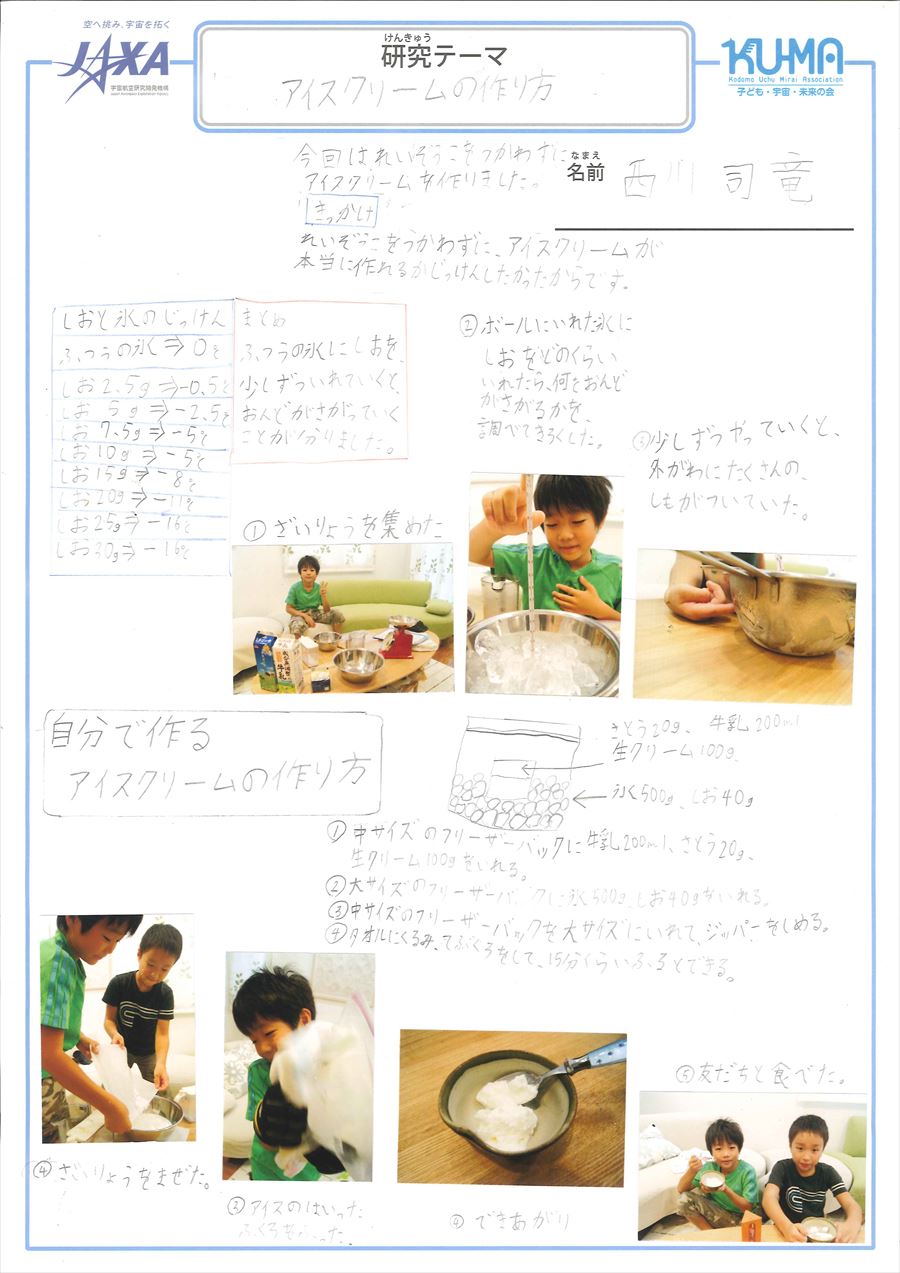 空へ挑み、宇宙を拓く
JAXA
宇宙航空研究開発機構
Japan Aerospace Exploration Agency
けんきゅう
研究テーマ
アイスクリームの作り方
KU-MA
Kodomo Uchu Mirai Association
子ども・宇宙・未来の会
今回はれいぞうこをつかわずに
アイスクリームを作りました。
なまえ
名前 西川 司竜
きっかけ
れいぞうこをつかわずに、アイスクリームが
本当に作れるかじっけんしたかったからです。
しおと氷のじっけん
ふつうの氷⇒0℃
しお2.5g⇒-0.5℃
しお5g⇒-2.5℃
しお7.5g⇒-5℃
しお10g⇒-5℃
しお15g⇒-8℃
しお20g⇒-11℃
しお25g⇒-16℃
しお30g⇒-16℃
まとめ
ふつうの氷にしおを、
少しずついれていくと、
おんどがさがっていく
ことが分りました。
①ざいりょうを集めた
②ボールにいれた氷に
しおをどのくらい
いれたら、何どおんど
がさがるかを、
調べてきろくした。
③少しずつやっていくと、
外がわにたくさんの、
しもがついていた。
自分で作る
アイスクリームの作り方
さとう20g、牛乳200ml
生クリーム100g
氷500g、しお40g
①中サイズのフリーザーバックに牛乳200ml、さとう20g、
生クリーム100gをいれる。
②大サイズのフリーザーバックに氷500g、しお40gをいれる。
③中サイズのフリーザーバックを大サイズにいれて、ジッパーをしめる。
④タオルにくるみ、てぶくろをして、15分くらいふるとできる。
④ざいりょうをまぜた。
③アイスのはいった
ふくろをふった。
④できあがり
⑤友だちと食べた。